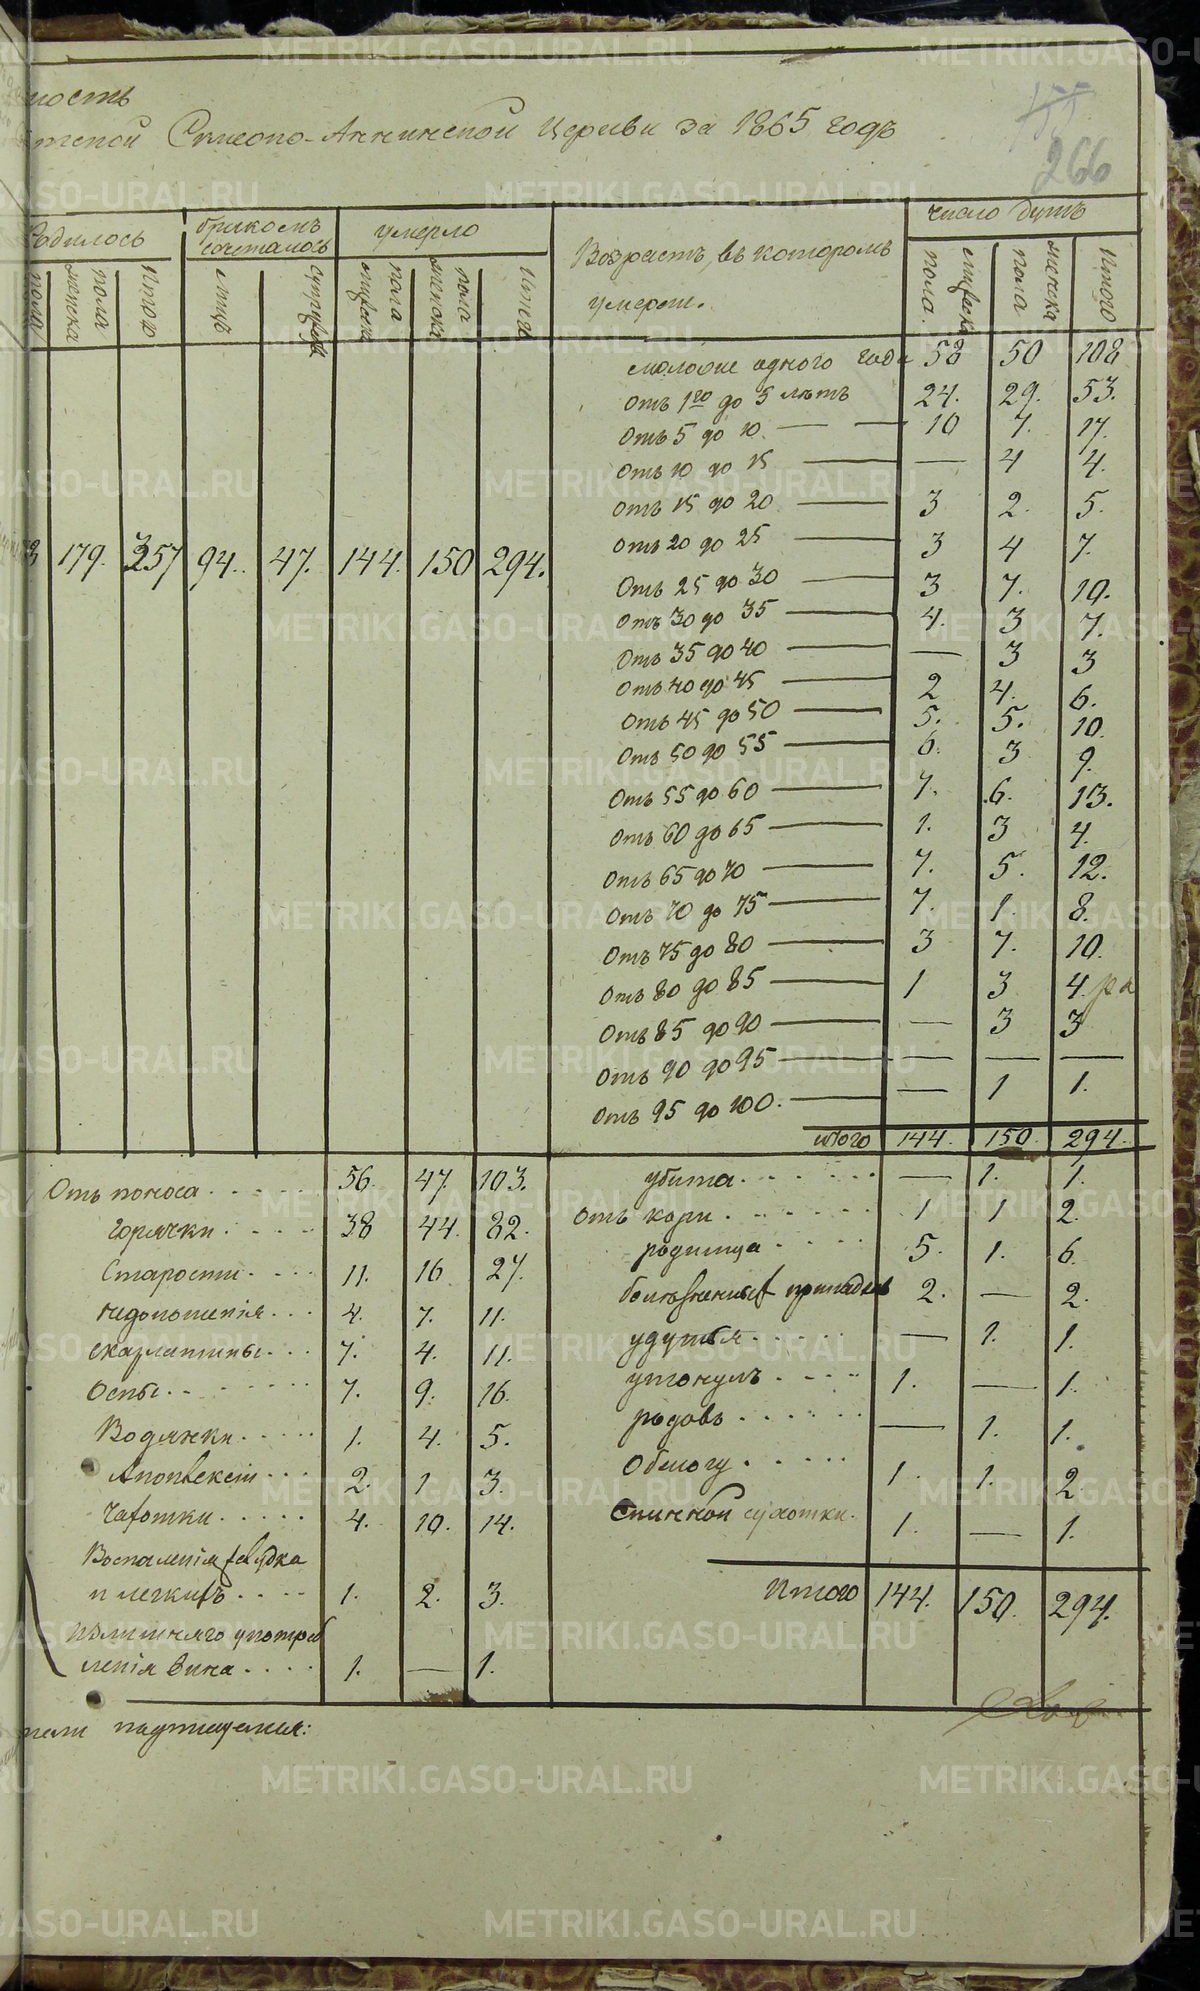 ность
тской Симеоно-Аннинской Церкви за 1865 годъ
155
266
Родилось
бракомъ сочеталось
умерло
Возрастъ, въ которомъ умерли.
число душъ
пола
женска пола
Итого
лицъ
супружествъ
мужеска пола
женска пола
Итого
мужеска пола
женска пола
Итого
179. 357 94. 47. 144. 150 294.
моложе одного года 58 50 108
Отъ 1го до 5 лѣтъ 24. 29. 53.
Отъ 5 до 10. — — 10 7. 17.
Отъ 10 до 15 — — 4 4.
Отъ 15 до 20 — 3 2. 5.
Отъ 20 до 25 — 3 4 7.
Отъ 25 до 30 — 3 7. 10.
Отъ 30 до 35 — 4. 3 7.
Отъ 35 до 40 — — 3 3
Отъ 40 до 45 — 2 4. 6.
Отъ 45 до 50 — 5. 5. 10.
Отъ 50 до 55 — 6. 3 9.
Отъ 55 до 60 — 7. 6. 13.
Отъ 60 до 65 — 1. 3 4.
Отъ 65 до 70 — 7. 5. 12.
Отъ 70 до 75 — 7. 1. 8.
Отъ 75 до 80 — 3 7. 10.
Отъ 80 до 85 — 1 3 4.
Отъ 85 до 90 — — 3 3
Отъ 90 до 95 — — — —
Отъ 95 до 100. — — 1 1.
Итого 144. 150. 294.
Отъ поноса . . . . . 56. 47. 103.
горячки . . . . 38 44. 82.
Старости . . . . 11. 16 27.
недоношенія . . . 4. 7. 11.
скарлатины . . . 7. 4. 11.
Оспы . . . . . . . 7. 9. 16.
Водянки . . . . . 1. 4. 5.
Апоплексіи . . . 2. 1 3.
Чахотки . . . . . 4. 10. 14.
Воспаленія желудка
и легкихъ . . . . 1. 2. 3.
излишняго употреб
ленія вина . . . . 1. — 1.
убита . . . . . . — 1. 1.
отъ кори . . . . . . . 1 1 2.
родимца . . . . 5. 1. 6.
болѣзненныхъ припадковъ 2. — 2.
удушья . . . . . — 1. 1.
утонулъ . . . . 1. — 1.
родовъ . . . . . . — 1. 1.
Обжогу . . . . . 1. 1. 2.
Спинной сухотки . 1. — 1.
Итого 144. 150. 294.
тели подтищеніи:
METRIKI.GASO-URAL.RU